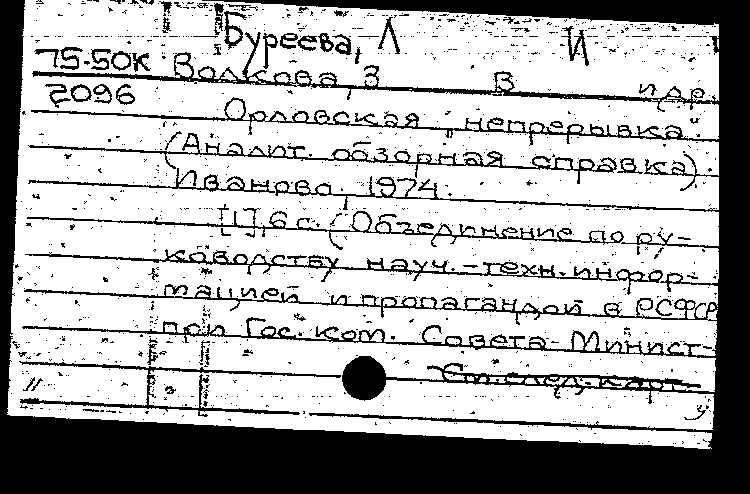 Буреева, Л И
75-50К Волкова, З В и др.
2096
Орловская „непрерывка".
(Аналит. обзорная справка).
Иваново, 1974.
[1], 6 с. (Объединение по ру-
ководству науч.-техн. инфор-
мацией и пропагандой в РСФСР
при Гос. ком. Совета Минист-
См. след. карт